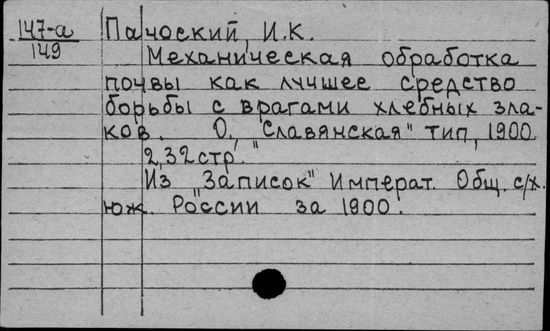 147-а Пачоский, И.К.
149
Механическая обработка
почвы как лучшее средство
борьбы с врагами хлебных зла-
ков. О, "Славянская" тип, 1900.
2, 32 стр.
Из "Записок" Императ. Общ. с/х.
юж. России за 1900.